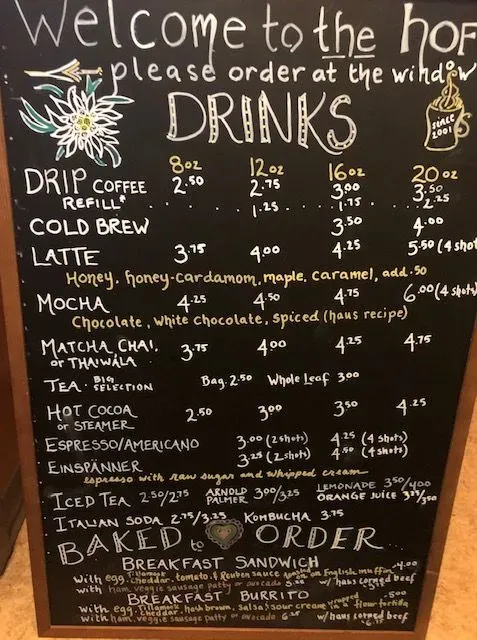 Welcome to the hof
please order at the window
SINCE 2001
DRINKS
8oz 12oz 16oz 20oz
DRIP COFFEE 2.50 2.75 3.00 3.50
REFILL* . . . . . 1.25 . . . 1.75 . . 2.25
COLD BREW 3.50 4.00
LATTE 3.75 4.00 4.25 5.50 (4 shots)
Honey, honey-cardamom, maple, caramel, add .50
MOCHA 4.25 4.50 4.75 6.00 (4 shots)
Chocolate, white chocolate, spiced (haus recipe)
MATCHA, CHAI, 3.75 4.00 4.25 4.75
or THAIWÁLA
TEA - BIG SELECTION Bag. 2.50 Whole Leaf 3.00
HOT COCOA 2.50 3.00 3.50 4.25
or STEAMER
ESPRESSO/AMERICANO 3.00 (2 shots) 4.25 (4 shots)
EINSPÄNNER 3.25 (2 shots) 4.50 (4 shots)
espresso with raw sugar and whipped cream
ICED TEA 2.50/2.75 ARNOLD PALMER 3.00/3.25 LEMONADE 3.50/4.00
ORANGE JUICE 3.25/3.50
ITALIAN SODA 2.75/3.25 KOMBUCHA 3.75
BAKED to ORDER
BREAKFAST SANDWICH
with egg, Tillamook cheddar, tomato, & Reuben sauce on English muffin 4.00
with ham, veggie sausage patty or avocado w/ haus corned beef
BREAKFAST BURRITO 5.00
with egg, Tillamook cheddar, hash brown, salsa & sour cream wrapped in a flour tortilla
with ham, veggie sausage patty or avocado 6.25 w/ haus corned beef